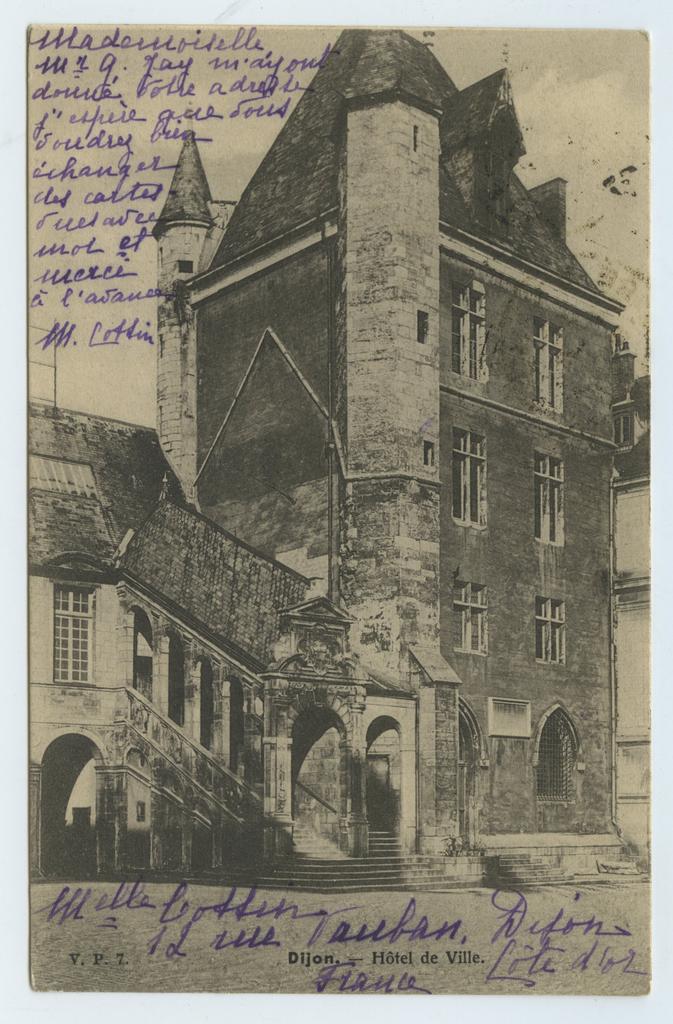 Mademoiselle
Mr G. Jay m'ayont
donné votre adresse
j'espère que vous
voudrez bien
échanger
des cartes
vues avec
moi et
merci
à l'avance
M. Cottin
Melle Cottin
12 rue Vauban, Dijon
Côte d'or
V. P. 7.
Dijon. — Hôtel de Ville.
France